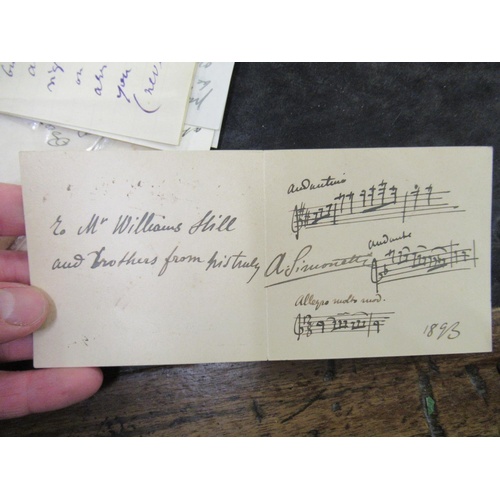 you
(rev
To Mr Williams Hill
and Brothers from his truly A Simonetti
andantino
andante
Allegro molto mod.
1893